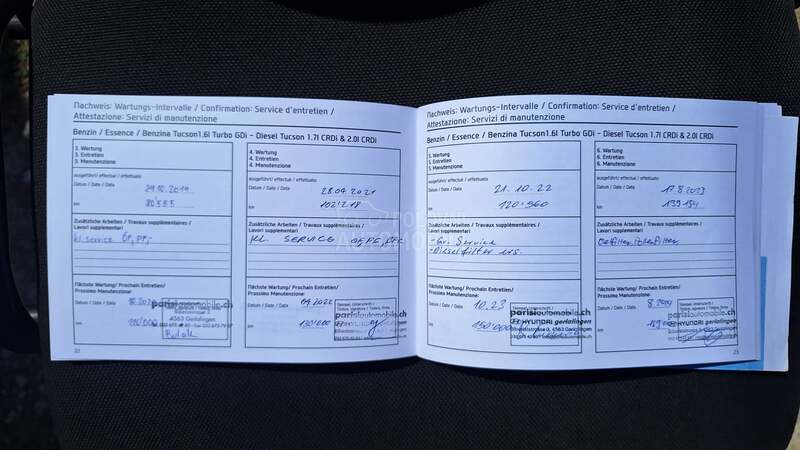 Nachweis: Wartungs-Intervalle / Confirmation: Service d'entretien /
Attestazione: Servizi di manutenzione
Benzin / Essence / Benzina Tucson1.6l Turbo GDi – Diesel Tucson 1.7l CRDi & 2.0l CRDi
3. Wartung
3. Entretien
3. Manutenzione
ausgeführt/ effectué / effettuato
Datum / Date / Data
29.10.2019
km
80'555
Zusätzliche Arbeiten / Travaux supplémentaires /
Lavori supplementari
kl. service
Nächste Wartung/ Prochain Entretien/
Prossimo Manutenzione:
Datum / Date / Data
km
parisiautomobile.ch
4563 Gerlafingen
4. Wartung
4. Entretien
4. Manutenzione
ausgeführt/ effectué / effettuato
Datum / Date / Data
28.04.2021
km
102'218
Zusätzliche Arbeiten / Travaux supplémentaires /
Lavori supplementari
KL. SERVICE
Nächste Wartung/ Prochain Entretien/
Prossimo Manutenzione:
Datum / Date / Data
04.2022
km
130'000
parisiautomobile.ch
Nachweis: Wartungs-Intervalle / Confirmation: Service d'entretien /
Attestazione: Servizi di manutenzione
Benzin / Essence / Benzina Tucson1.6l Turbo GDi – Diesel Tucson 1.7l CRDi & 2.0l CRDi
5. Wartung
5. Entretien
5. Manutenzione
ausgeführt/ effectué / effettuato
Datum / Date / Data
21.10.22
km
120'960
Zusätzliche Arbeiten / Travaux supplémentaires /
Lavori supplementari
Service
Dieselfilter
Nächste Wartung/ Prochain Entretien/
Prossimo Manutenzione:
Datum / Date / Data
10.23
km
150'000
parisiautomobile.ch
HYUNDAI gerlafingen
6. Wartung
6. Entretien
6. Manutenzione
ausgeführt/ effectué / effettuato
Datum / Date / Data
17.8.2023
km
139'154
Zusätzliche Arbeiten / Travaux supplémentaires /
Lavori supplementari
Nächste Wartung/ Prochain Entretien/
Prossimo Manutenzione:
Datum / Date / Data
km
parisiautomobile.ch
HYUNDAI gerlafingen
25